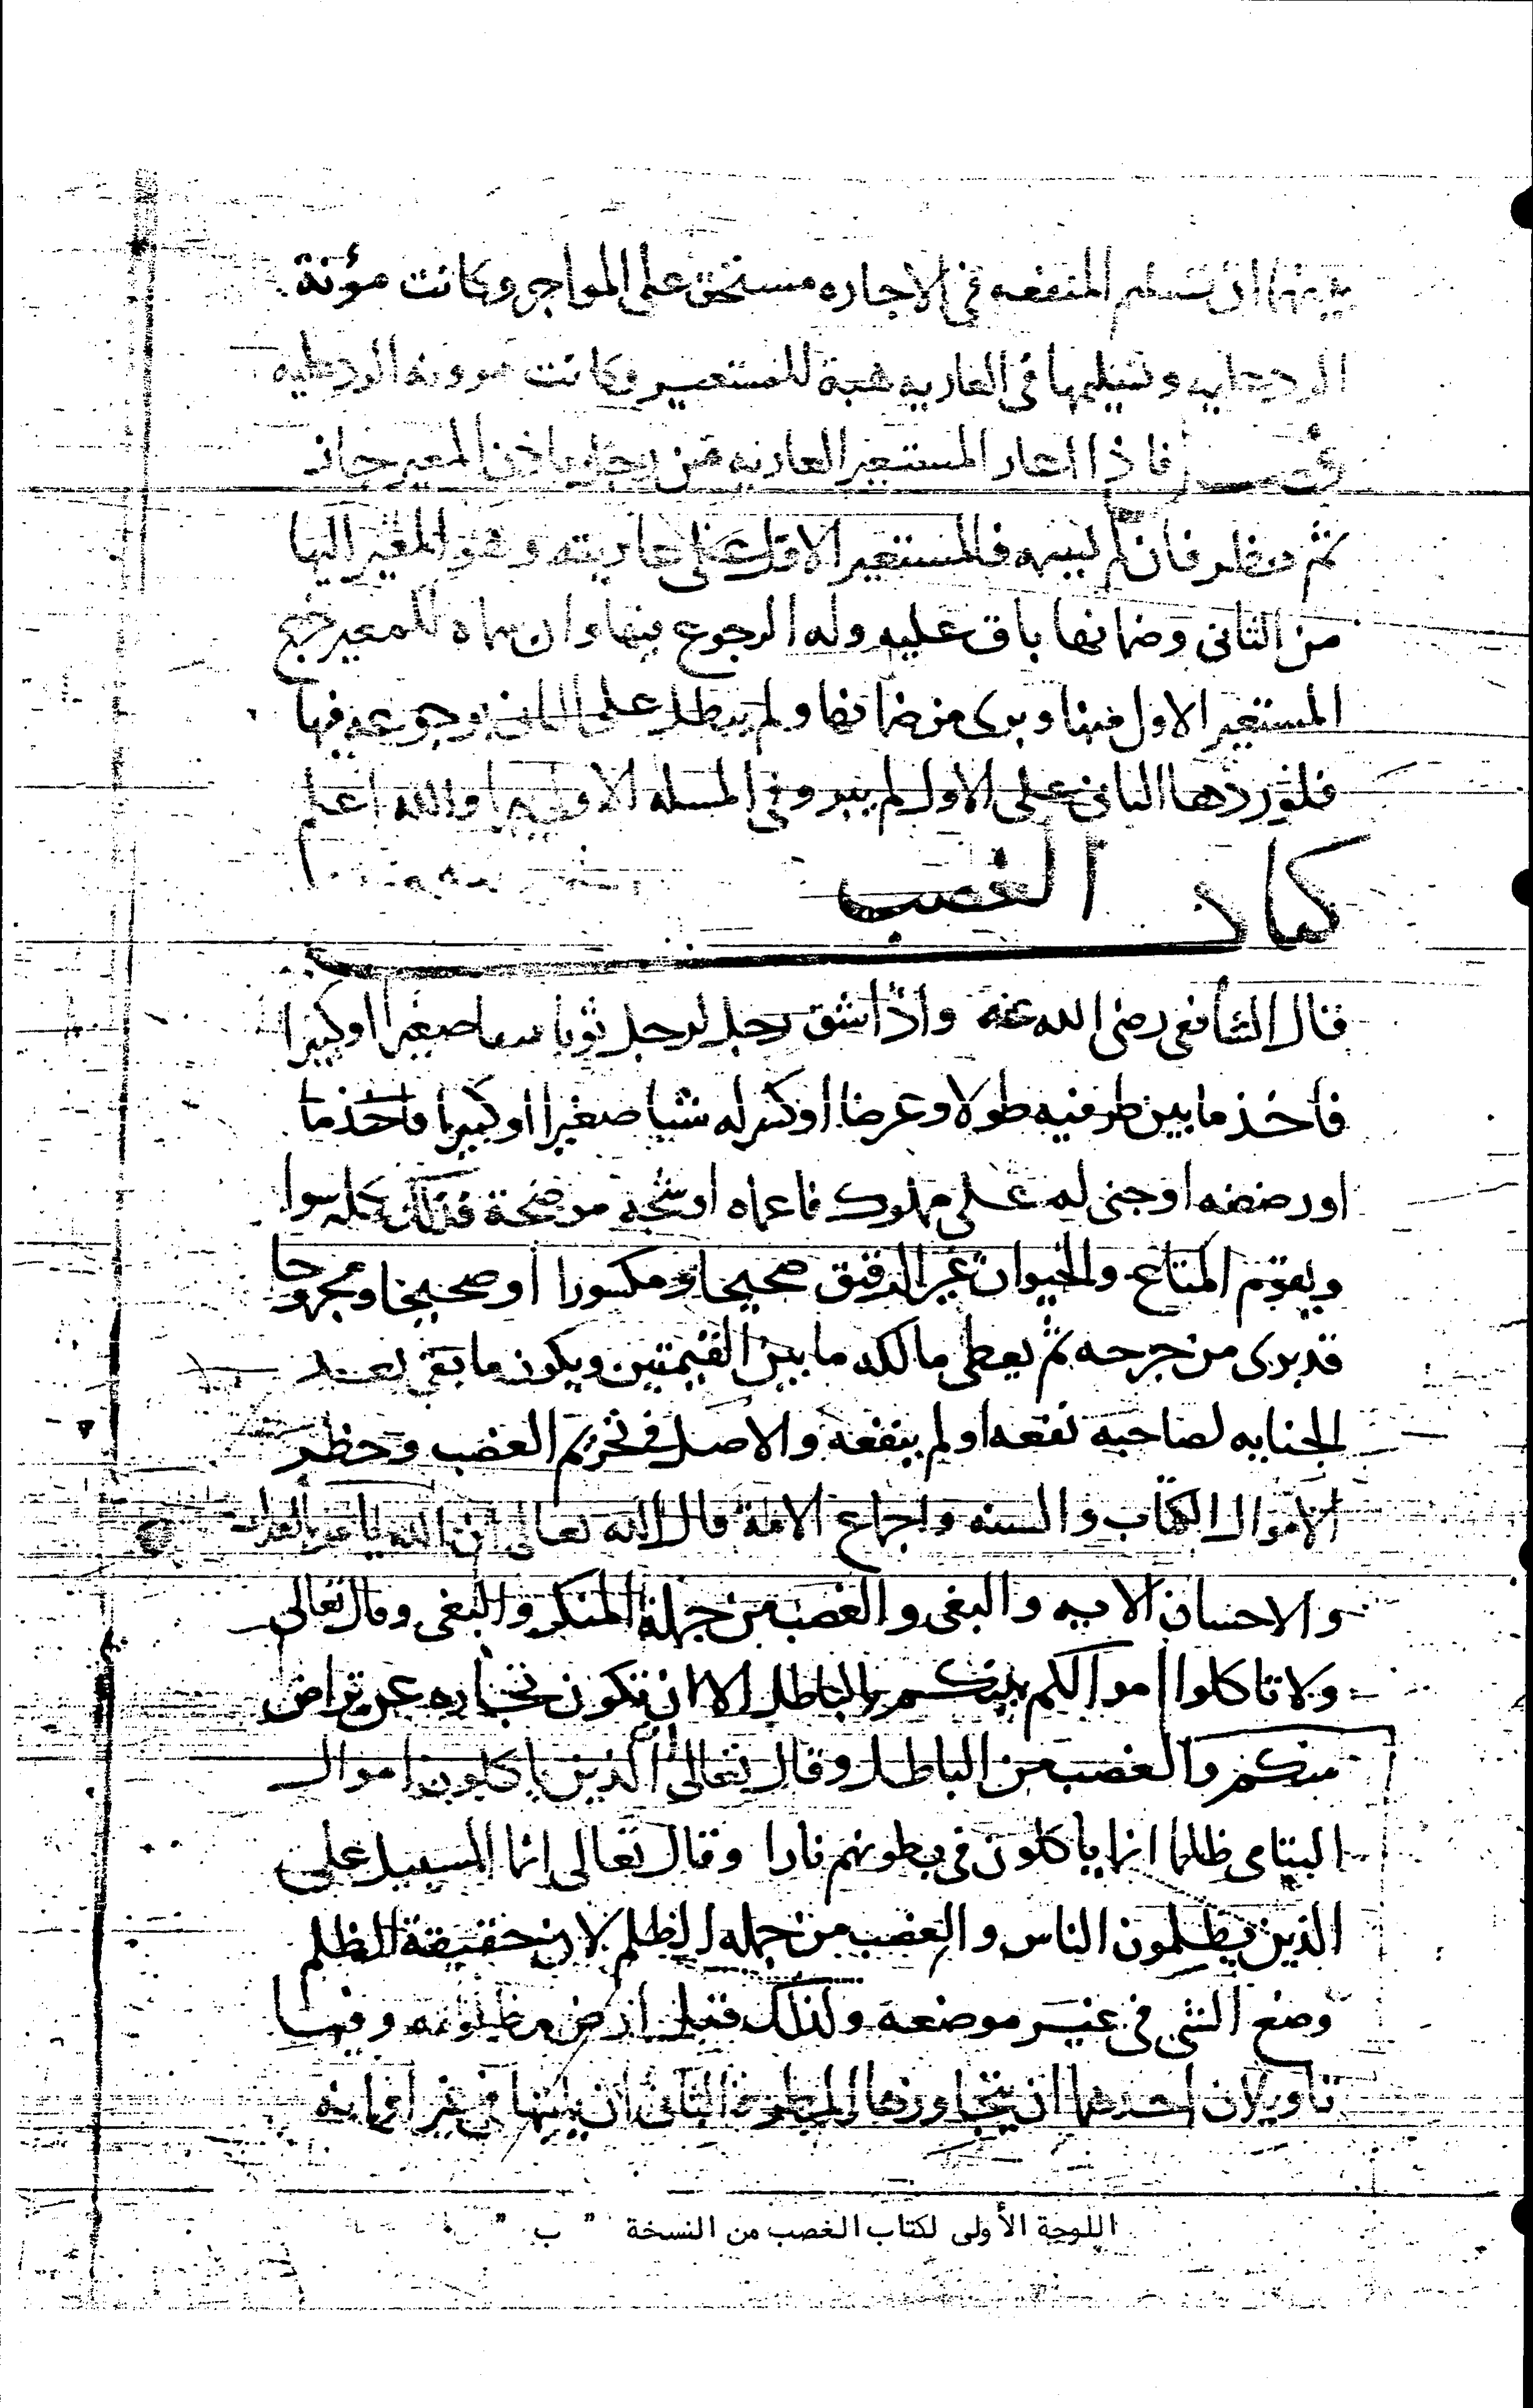 بينهما ان تسليم المنفعه في الاجاره مستحق على المواجر وكانت مؤنة
الرد عليه وتسليمها في العاريه هبة للمستعير وكانت موونه الرد عليه
فصل فاذا اعار المستعير العاريه من رجل باذن المعير جاز
ثم ينظر فان لم يسمه فالمستعير الاول على عاريته وهو المعير
من الثاني وضمانها باق عليه وله الرجوع فيها وان سماه للمعير خرج
المستعير الاول منها وبرى من ضمانها ولم يبطل على الثاني رجوعه فيها
فلو ردها الثاني على الاول لم يبر وفي المسله الاولى والله اعلم
كتاب الغصب
قال الشافعي رضي الله عنه واذا شق رجل لرجل ثوبا شقا صغيرا او كبيرا
فاخذ ما بين طرفيه طولا وعرضا او كسر له شيا صغيرا او كبيرا فاخذ ما
او رضضه او جنى له على مملوك فاعماه او شجه موضحة فذلك كله سوا
ويقوم المتاع والحيوان غير الرقيق صحيحا ومكسورا او صحيحا ومجروحا
قد برى من جرحه ثم يعطى مالكه ما بين القيمتين ويكون ما بقي بعد
الجنايه لصاحبه نفعه او لم ينفعه والاصل في تحريم الغصب وحظر
الاموال الكتاب والسنه واجماع الامة قال الله تعالى ان الله يامر بالعدل
والاحسان الايه والبغي والغصب من جملة المنكر والبغي وقال تعالى
ولا تاكلوا اموالكم بينكم بالباطل الا ان تكون تجاره عن تراض
منكم والغصب من الباطل وقال تعالى ان الذين ياكلون اموال
اليتامى ظلما انما ياكلون في بطونهم نارا وقال تعالى انما السبيل على
الذين يظلمون الناس والغصب من جمله الظلم لان حقيقة الظلم
وضع الشي في غير موضعه ولذلك قيل ارض مظلومه وفيها
تاويلان احدهما ان يتجاوزها المطر والثاني ان ياتيها في غير اوانه
اللوحة الأولى لكتاب الغصب من النسخة " ب "